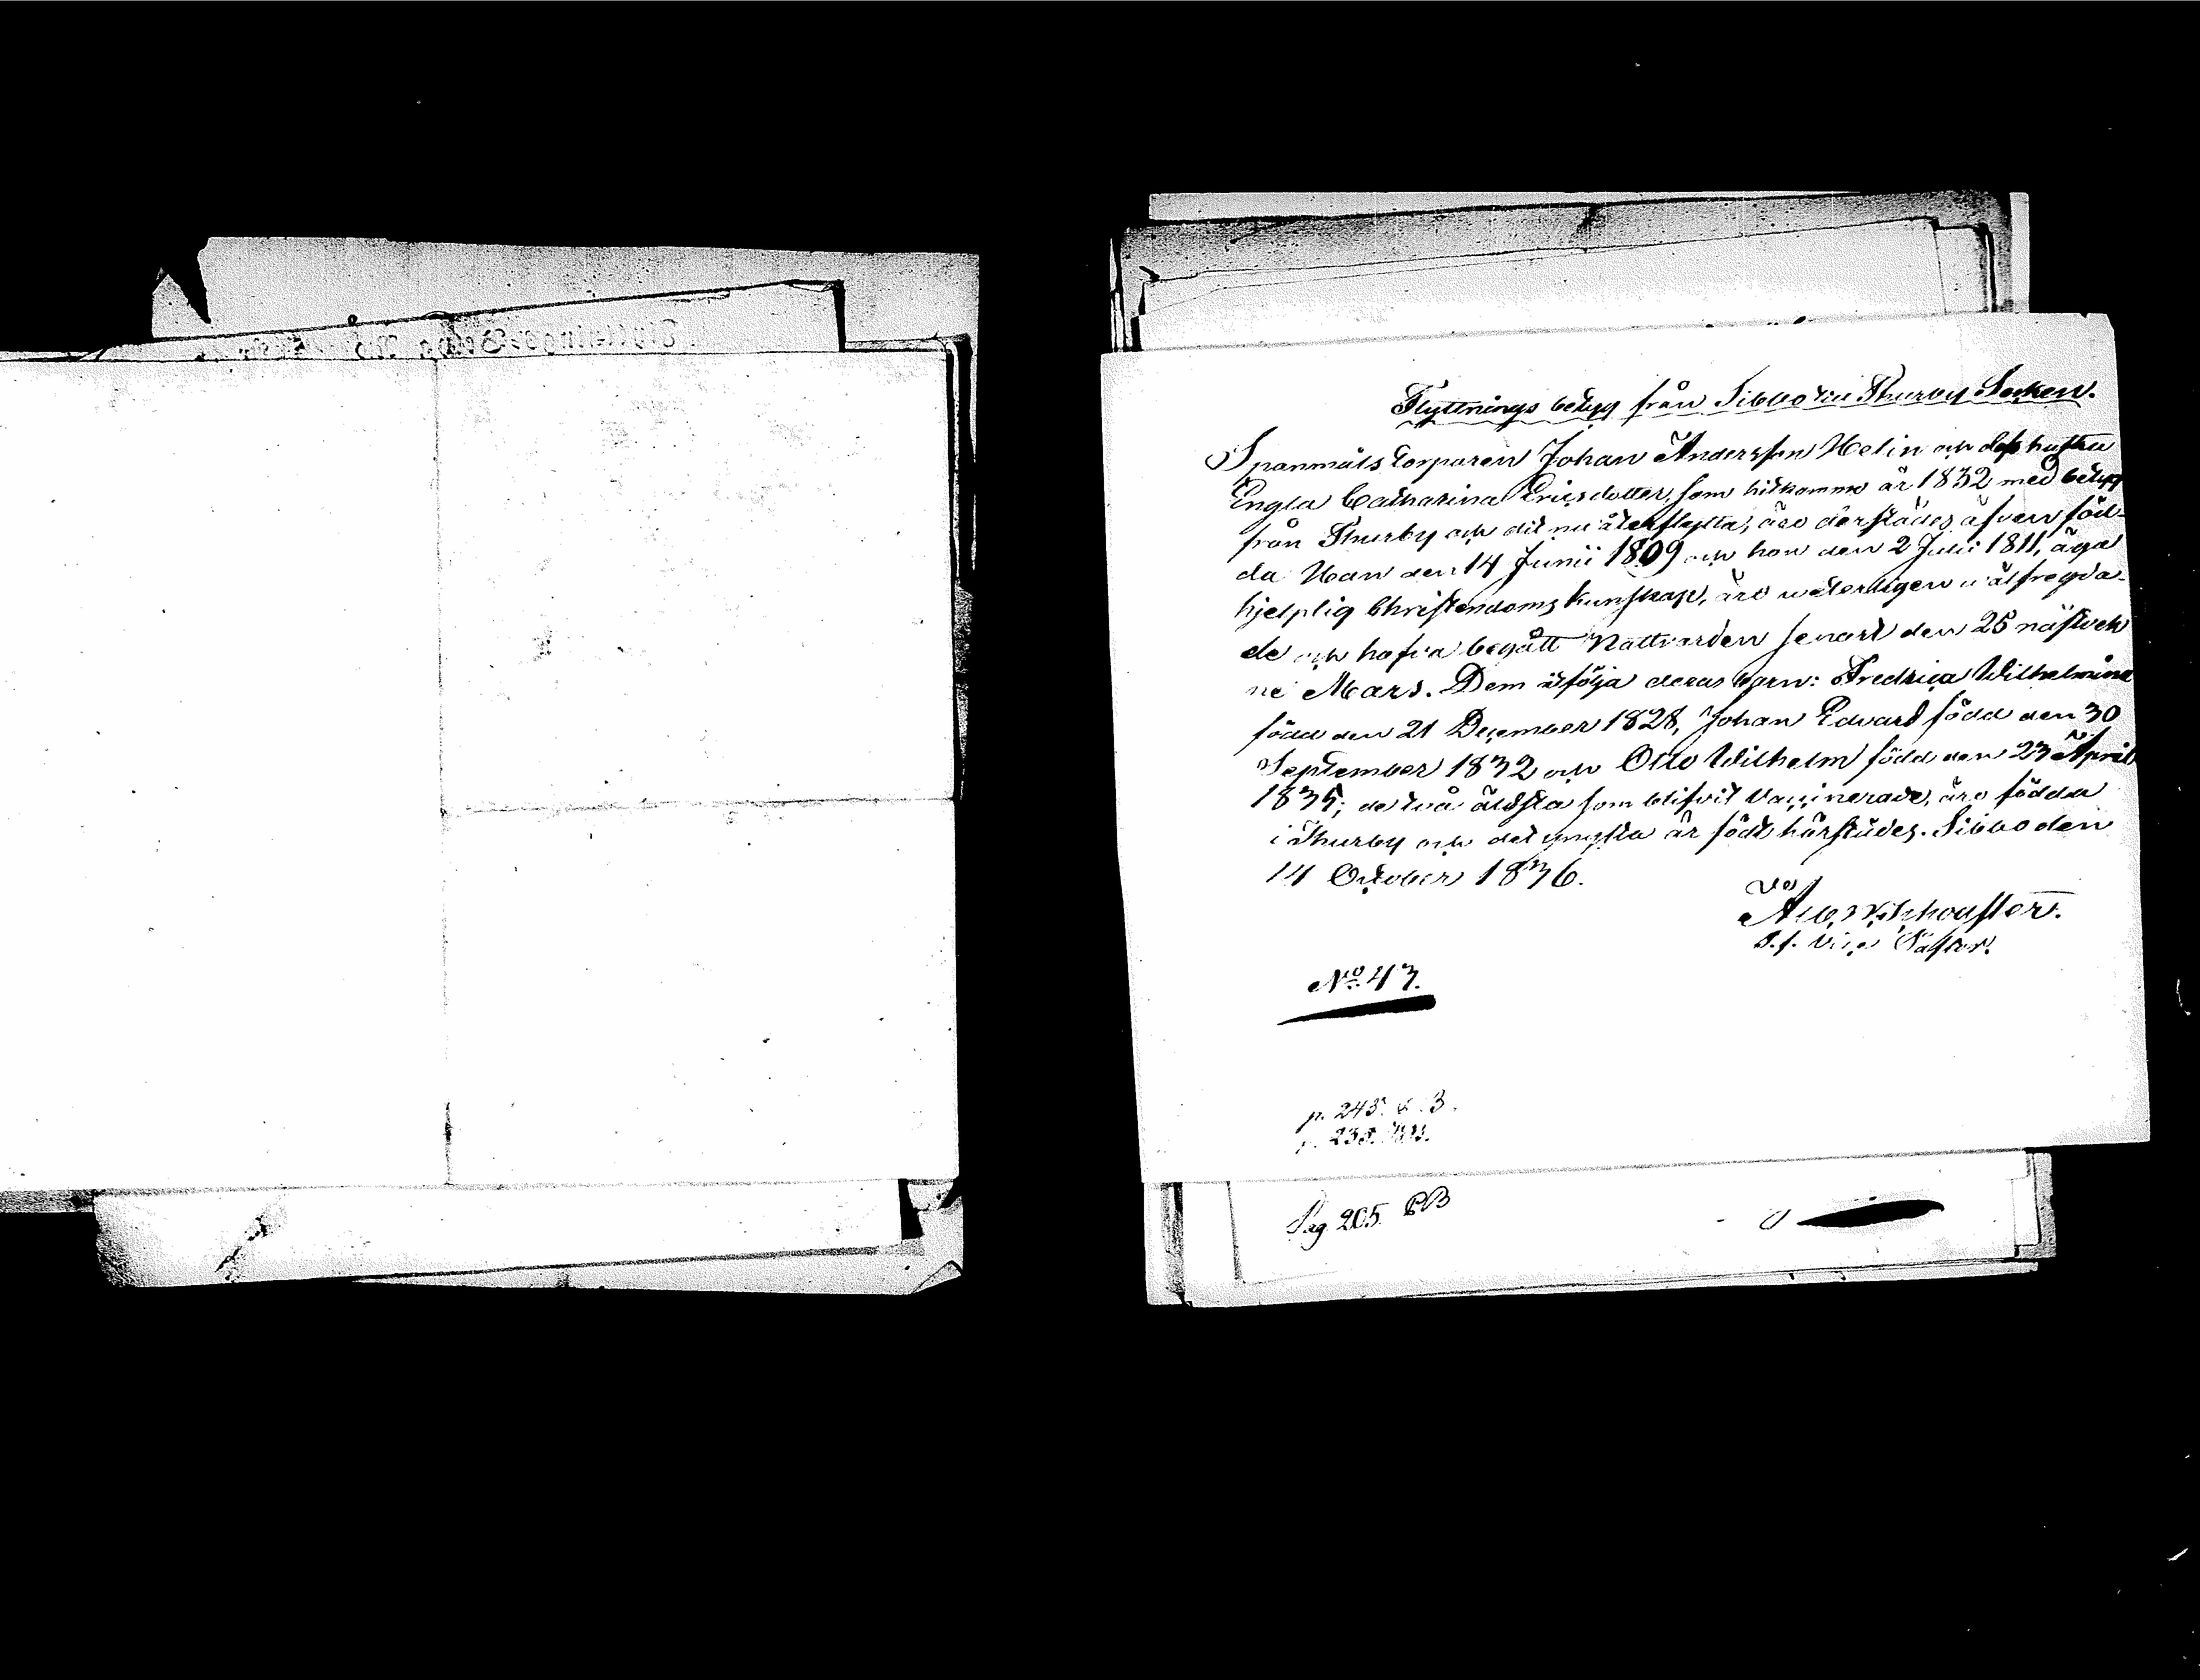 Flyttnings betyg från Sibbo till Thurby Socken.
Spanmåls torparen Johan Andersson Helin och dess hustru
Engla Catharina Ericsdotter, som hitkommo år 1832 med betyg
från Thurby och dit nu återflytta, äro derstädes äfven föd-
da Han den 14 Junii 1809 och hon den 2 Julii 1811, äga
hjelplig Christendoms kunskap, äro weterligen wälfregda-
de och hafva begått Nattvarden senast den 25 nästvek
ne Mars. Dem åtfölja deras barn: Fredrica Wilhelmina
född den 21 December 1828, Johan Edvard född den 30
September 1832 och Otto Wilhelm född den 23 April
1835; de två äldsta som blifvit Vaccinerade, äro födda
i Thurby och det yngsta är födt härstädes. Sibbo den
14 October 1836.
v. Pastor.
No. 43.
p. 245.
p. 235.
Pag. 205. CB